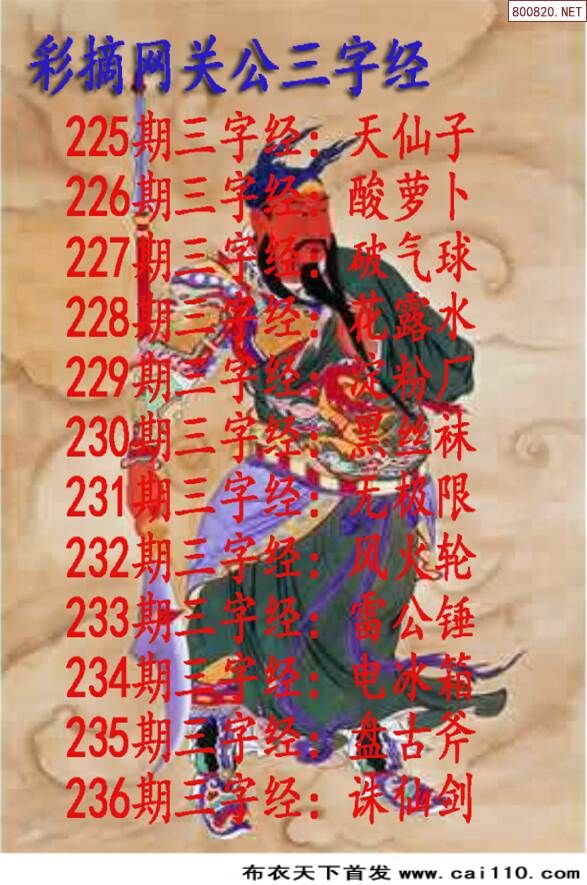 800820.NET
彩摘网关公三字经
225期三字经：天仙子
226期三字经：酸萝卜
227期三字经：破气球
228期三字经：花露水
229期三字经：淀粉厂
230期三字经：黑丝袜
231期三字经：无极限
232期三字经：风火轮
233期三字经：雷公锤
234期三字经：电冰箱
235期三字经：盘古斧
236期三字经：诛仙剑
布衣天下首发 www.cai110.com